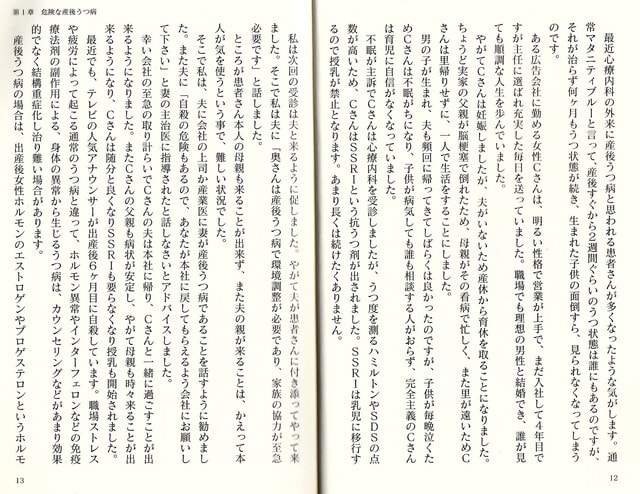 最近心療内科の外来に産後うつ病と思われる患者さんが多くなったような気がします。通
常マタニティブルーと言って、産後すぐから2週間ぐらいのうつ状態は誰にもあるのですが、
それが治らず何ヶ月もうつ状態が続き、生まれた子供の面倒すら、見られなくなってしまう
のです。
ある広告会社に勤める女性Cさんは、明るい性格で営業が上手で、まだ入社して4年目で
すが主任に選ばれ充実した毎日を送っていました。職場でも理想の男性と結婚でき、誰が見
ても順調な人生を歩んでいました。
やがてCさんは妊娠しましたが、夫がいないため産休から育休を取ることになりました。
ちょうど実家の父親が脳梗塞で倒れたため、母親がその看病で忙しく、また里が遠いためC
さんは里帰りせずに、一人で生活をすることにしました。
男の子が生まれ、夫も頻回に帰ってきてしばらくは良かったのですが、子供が毎晩泣くた
めCさんは不眠がちになり、子供が病気しても誰も相談する人がおらず、完全主義のCさん
は育児に自信がなくなっていました。
不眠が主訴でCさんは心療内科を受診しましたが、うつ度を測るハミルトンやSDSの点
数が高いため、CさんはSSRIという抗うつ剤が出されました。SSRIは乳児に移行す
るので授乳が禁止となります。あまり長くは続けたくありません。
12
私は次回の受診は夫と来るように促しました。やがて夫が患者さんに付き添ってやって来
ました。そこで私は夫に「奥さんは産後うつ病で環境調整が必要であり、家族の協力が至急
必要です」と話しました。
ところが患者さん本人の母親も来ることが出来ず、また夫の親が来ることは、かえって本
人が気を使うという事で、難しい状況でした。
そこで私は、夫に会社の上司か産業医に妻が産後うつ病であることを話すように勧めまし
た。また夫に「自殺の危険もあるので、あなたが本社に戻してもらえるよう会社にお願いし
て下さい」と妻の主治医に指導されたと話しなさいとアドバイスしました。
幸い会社の至急の取り計らいでCさんの夫は本社に帰り、Cさんと一緒に過ごすことが出
来るようになりました。またCさんの父親も病状が安定し、やがて母親も時々来ることが出
来るようになり、Cさんは随分と良くなりSSRIも要らなくなり授乳も開始されました。
最近でも、テレビの人気アナウンサーが出産後6ヶ月目に自殺しています。職場ストレス
や疲労によって起こる通常のうつ病と違って、ホルモン異常やインターフェロンなどの免疫
療法剤の副作用による、身体の異常から生じるうつ病は、カウンセリングなどがあまり効果
的でなく結構重症化し治り難い場合があります。
産後うつ病の場合は、出産後女性ホルモンのエストロゲンやプロゲステロンというホルモ
第1章 危険な産後うつ病
13